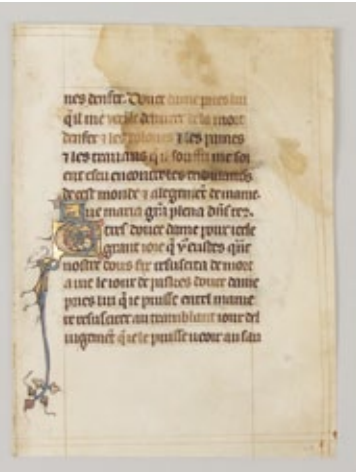 nes denfer. Douce dame pries lui
q̃il me veille delivrer de la mort
denfer ⁊ les ⁊ les paines
⁊ les travaus q̃ il souffri me soi
ent escu encontre les
de cest monde ⁊ alegement de mame.
Ave maria gr̃a plena dñs tec.
E tres douce dame pour icele
grant ioie q̃ v̾ eustes q̃nt
nostre dous fix resuscita de mort
a vie le iour de pasches douce dame
pries lui q̃ ie puisse entel manie
re resusciter au tramblant iour del
iugement q̃ ie le puisse veoir au sau